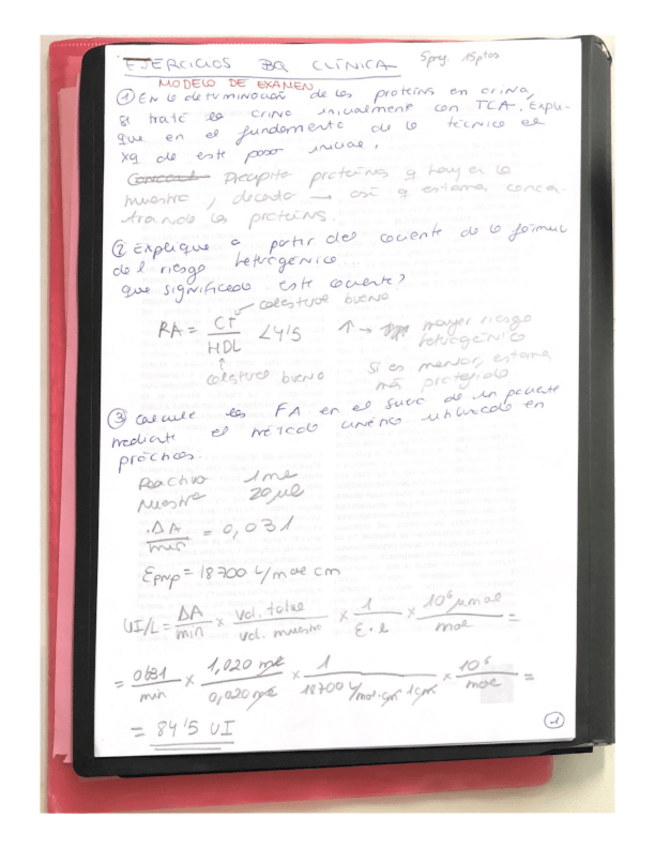 EJERCICIOS BQ CLÍNICA 5preg. 15ptos
MODELO DE EXAMEN
① EN la determinación de las proteínas en orina,
se trató la orina inicialmente con TCA. Expli-
que en el fundamento de la técnica el
xq de este paso inicial.
Precipita proteínas q hay en la
muestra, decanta → así q estamos concen-
trando las proteínas.
② Explique a partir del cociente de la fórmula
del riesgo
que significado este cociente?
colesterol bueno
RA = CT / HDL < 4'5 ↑ → mayor riesgo
Si es menor, estamos
más protegido
colesterol bueno
③ Calcule las FA en el suero de un paciente
mediante el método cinético utilizado en
prácticas.
Reactivo 1ml
Muestra 20µl
ΔA / min = 0,031
Epnp = 18700 L/mol cm
UI/L = ΔA / min × vol. total / vol. muestra × 1 / ε·l × 10⁶ µmol / mol =
= 0'031 / min × 1,020 ml / 0,020 ml × 1 / 18700 L/mol·cm · 1cm × 10⁶ / mol =
= 84'5 UI
1